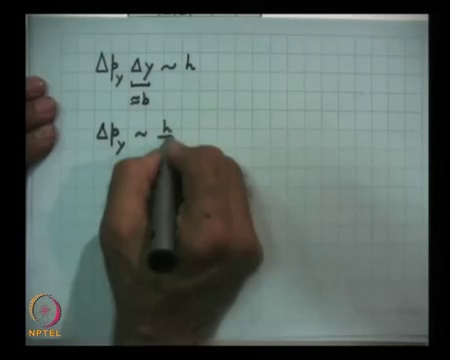 Δp_y Δy ~ h
≈b
Δp_y ~ h
NPTEL